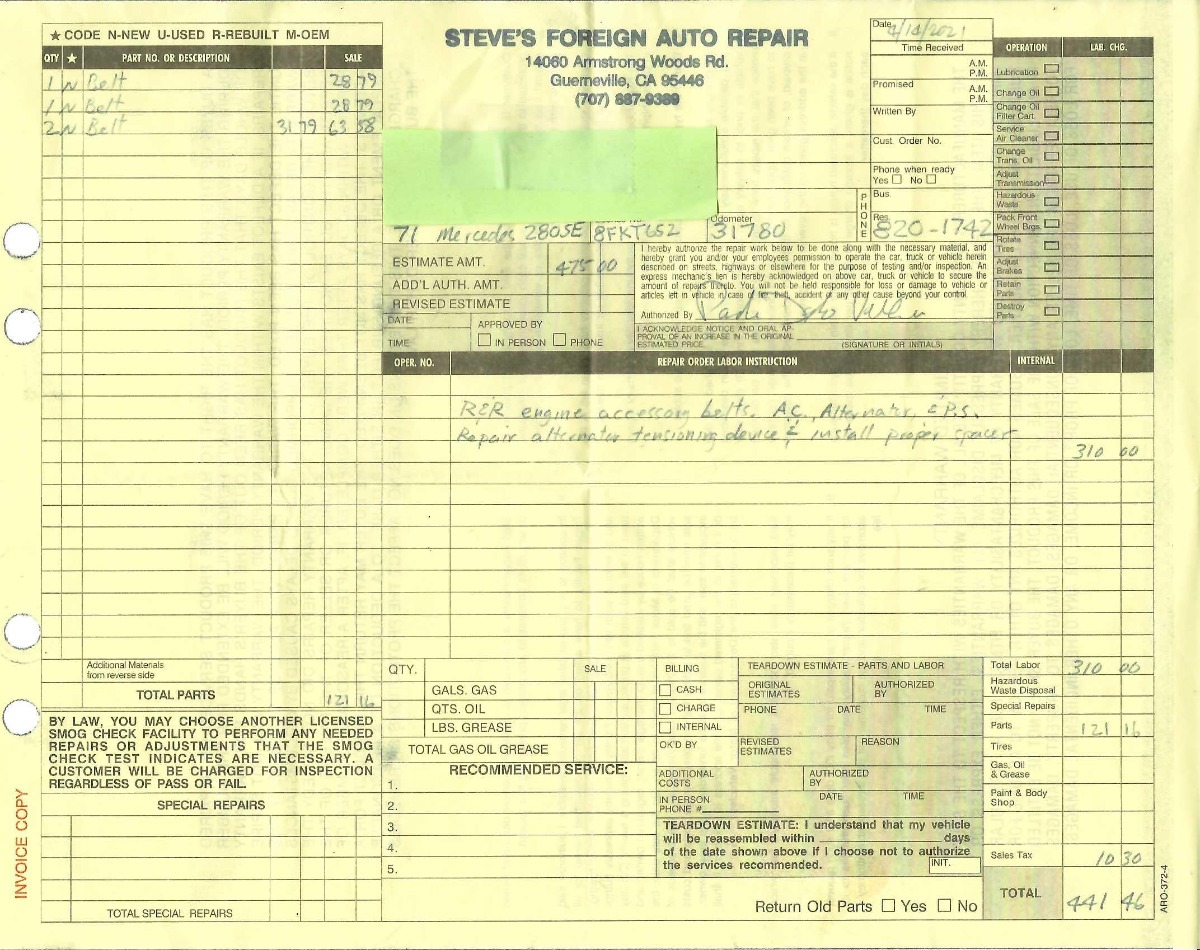 ★ CODE N-NEW U-USED R-REBUILT M-OEM
QTY ★ PART NO. OR DESCRIPTION SALE
1 N Belt 28 79
1 N Belt 28 79
2 N Belt 31 79 63 58
Additional Materials
from reverse side
TOTAL PARTS 121 16
BY LAW, YOU MAY CHOOSE ANOTHER LICENSED
SMOG CHECK FACILITY TO PERFORM ANY NEEDED
REPAIRS OR ADJUSTMENTS THAT THE SMOG
CHECK TEST INDICATES ARE NECESSARY. A
CUSTOMER WILL BE CHARGED FOR INSPECTION
REGARDLESS OF PASS OR FAIL.
SPECIAL REPAIRS
TOTAL SPECIAL REPAIRS
INVOICE COPY
STEVE'S FOREIGN AUTO REPAIR
14060 Armstrong Woods Rd.
Guerneville, CA 95446
(707) 887-9389
Date /14/2021
Time Received
A.M.
P.M.
Promised
A.M.
P.M.
Written By
Cust. Order No.
Phone when ready
Yes No
PHONE
Bus.
Res.
820-1742
Odometer
71 Mercedes 280SE 8FKT652 31780
ESTIMATE AMT. 475 00
ADD'L AUTH. AMT.
REVISED ESTIMATE
DATE
TIME
APPROVED BY
IN PERSON PHONE
I hereby authorize the repair work below to be done along with the necessary material, and
hereby grant you and/or your employees permission to operate the car, truck or vehicle herein
described on streets, highways or elsewhere for the purpose of testing and/or inspection. An
express mechanic's lien is hereby acknowledged on above car, truck or vehicle to secure the
amount of repairs thereto. You will not be held responsible for loss or damage to vehicle or
articles left in vehicle in case of fire theft, accident or any other cause beyond your control
Authorized By
I ACKNOWLEDGE NOTICE AND ORAL AP-
PROVAL OF AN INCREASE IN THE ORIGINAL
ESTIMATED PRICE. (SIGNATURE OR INITIALS)
OPERATION LAB. CHG.
Lubrication
Change Oil
Change Oil
Filter Cart.
Service
Air Cleaner
Change
Trans. Oil
Adjust
Transmission
Hazardous
Waste
Pack Front
Wheel Brgs.
Rotate
Tires
Adjust
Brakes
Retain
Parts
Destroy
Parts
OPER. NO. REPAIR ORDER LABOR INSTRUCTION INTERNAL
R&R engine accessory belts. A.C., Alternator, & P.S.
Repair alternator tensioning device & install proper spacer
310 00
QTY. SALE
GALS. GAS
QTS. OIL
LBS. GREASE
TOTAL GAS OIL GREASE
RECOMMENDED SERVICE:
1.
2.
3.
4.
5.
BILLING
CASH
CHARGE
INTERNAL
OK'D BY
TEARDOWN ESTIMATE - PARTS AND LABOR
ORIGINAL
ESTIMATES
AUTHORIZED
BY
PHONE DATE TIME
REVISED
ESTIMATES
REASON
ADDITIONAL
COSTS
AUTHORIZED
BY
IN PERSON
PHONE #
DATE TIME
TEARDOWN ESTIMATE: I understand that my vehicle
will be reassembled within days
of the date shown above if I choose not to authorize
the services recommended.
INIT.
Return Old Parts Yes No
Total Labor 310 00
Hazardous
Waste Disposal
Special Repairs
Parts 121 16
Tires
Gas, Oil
& Grease
Paint & Body
Shop
Sales Tax 10 30
TOTAL 441 46
ARO-372-4